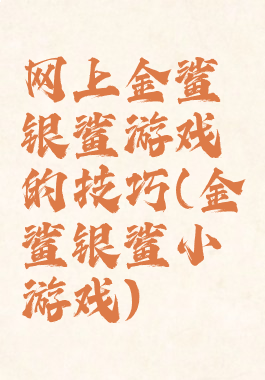 网上金鲨
银鲨游戏
的技巧(金
鲨银鲨小
游戏)